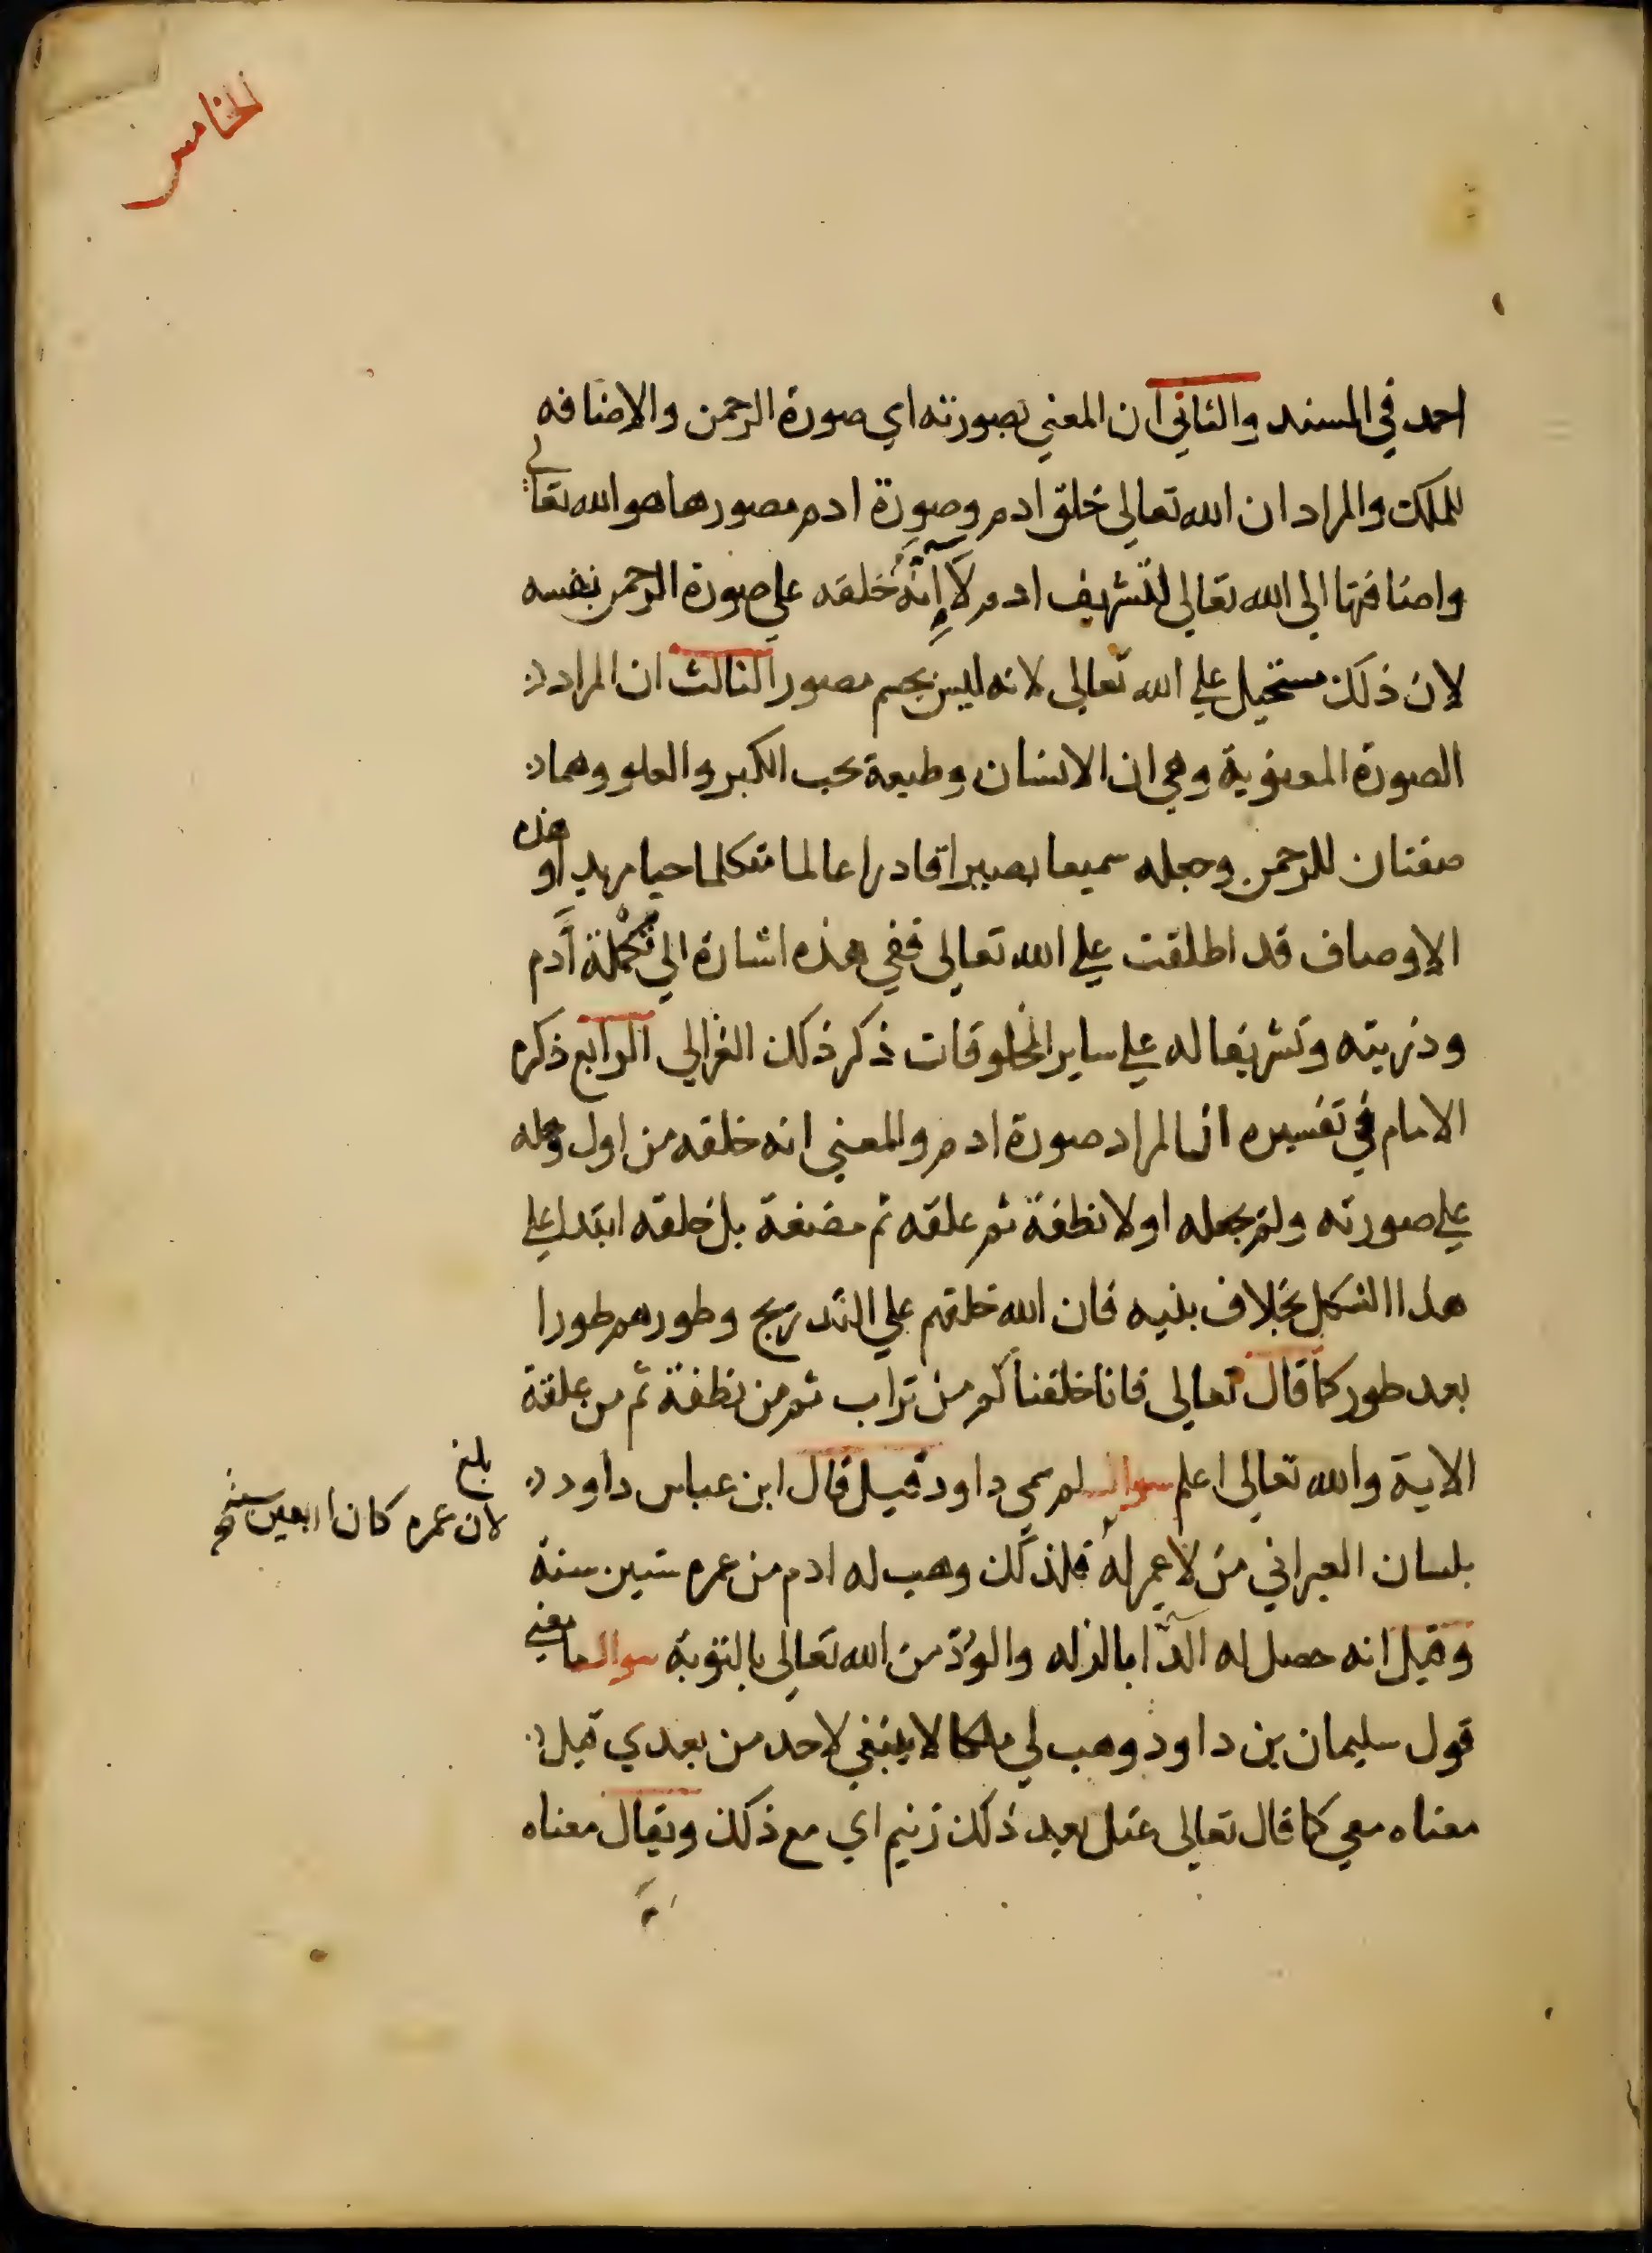 الخامس
احمد في المسند والثاني ان المعني بصورته اي صورة الرحمن والاضافه
للملك والمراد ان الله تعالى خلق ادم وصورة ادم مصورها هو الله تعالى
واضافتها الى الله تعالى لتشريف ادم لا إنه خلقه على صورة الرحمن نفسه
لان ذلك مستحيل علي الله تعالى لانه ليس بجسم مصور الثالث ان المراد
الصورة المعنوية وهي ان الانسان وطبعة يحب الكبر والعلو وهما
صفتان للرحمن وجعله سميعا بصيرا قادرا عالما متكلما حيا مريدا وهذه
الاوصاف قد اطلقت علي الله تعالى ففي هذه اشارة الي تكملة آدم
وذريته وتشريفا له علي ساير المخلوقات ذكر ذلك الغزالي الرابع ذكره
الامام في تفسيره ان المراد صورة ادم والمعني انه خلقه من اول وهله
علي صورته ولم يجعله اولا نطفة ثم علقه ثم مضغة بل خلقه ابتداء علي
هذا الشكل بخلاف بنيه فان الله خلقهم علي التدريج وطورهم طورا
بعد طور كما قال تعالى فانا خلقناكم من تراب ثم من نطفة ثم من علقة
الاية والله تعالى اعلم سوال لم سمي داود قيل قال ابن عباس داود
بلسان العبراني من لا عمر له فلذلك وهب له ادم من عمره ستين سنة
بلغ
لان عمره كان اربعين سنة
وقيل انه حصل له الدّا بالذله والودّ من الله تعالى بالتوبة سوال ما معني
قول سليمان بن داود وهب لي ملكا لا ينبغي لاحد من بعدي قيل
معناه معي كما قال تعالى عتل بعد ذلك زنيم اي مع ذلك ويقال معناه